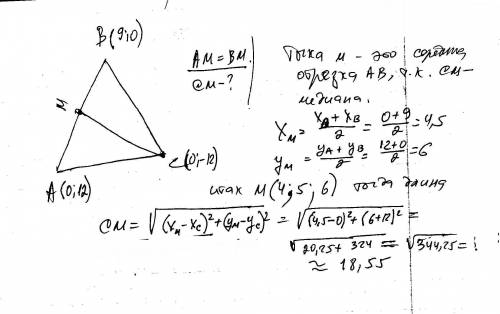 B (9;0)
AM = BM.
CM - ?
M
A (0;12)
C (0;-12)
Точка M - это середина
отрезка AB, т.к. CM -
медиана.
X_M = (X_A + X_B)/2 = (0+9)/2 = 4,5
y_M = (y_A + y_B)/2 = (12+0)/2 = 6
итак M (4,5; 6) тогда длина
CM = √((X_M - X_C)² + (y_M - y_C)²) = √((4,5-0)² + (6+12)²) =
√(20,25 + 324) = √344,25 =
≈ 18,55